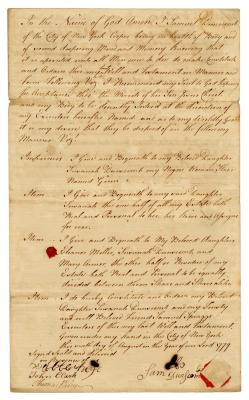 In the Name of God Amen I Samuel
of the City of New York Cooper being in health of Body and
of sound disposing Mind and Memory knowing that
it is appointed unto all Men once to die do make constitute
and Ordain this my Will and Testament in Manner and
form following Viz.t I Recommend my spirit to God hoping
for Acceptance thro' the Merits of his Son Jesus Christ
and my Body to be decently Interred at the discretion of
my Executors hereafter Named and as to my Worldly Goods
it is my desire that they be disposed of in the following
Manner Viz.t
Imprimis I Give and Bequeath to my Beloved Daughter
Susanah my Negro Woman Slave
Named
Item I Give and Bequeath to my said Daughter
Susanah the one half of my Estate both
Real and Personal to her, her Heirs and Assigns
for ever.
Item I Give and Bequeath to My Beloved Daughters
Eleanor Susanah and
Mary the other half or Residue of my
Estate both Real and Personal to be equally
divided between them Share and Share alike
Item I do hereby Constitute and Ordain my Beloved
Daughter Susanah and my
well Beloved Friend Samuel
Executors of this my last Will and Testament,
Given under my Hand in the City of New York
this day of August in the Year of our Lord 1779
Signed Sealed and
in presence of
John
Thomas
Sam